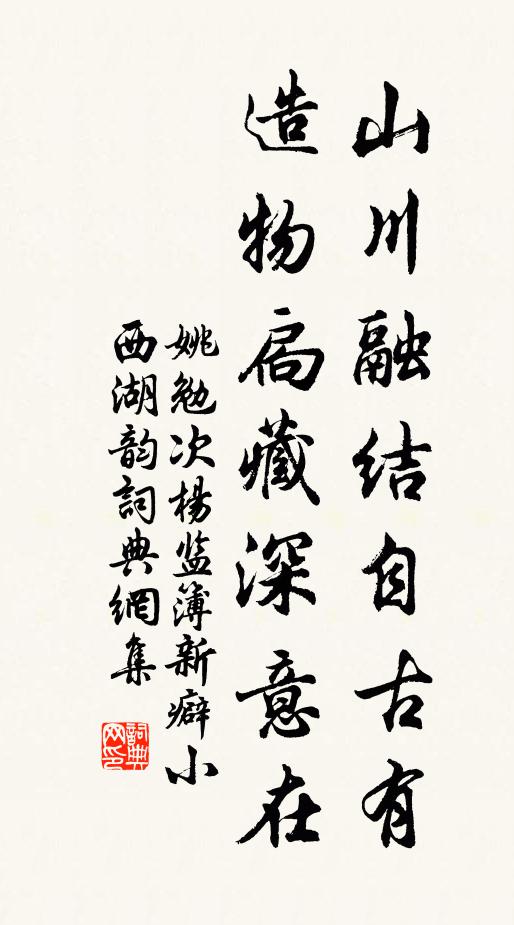 山川融结自古有
造物扃藏深意在
姚勉次楊监簿新癖小
西湖韵詞典網集
詞典网印